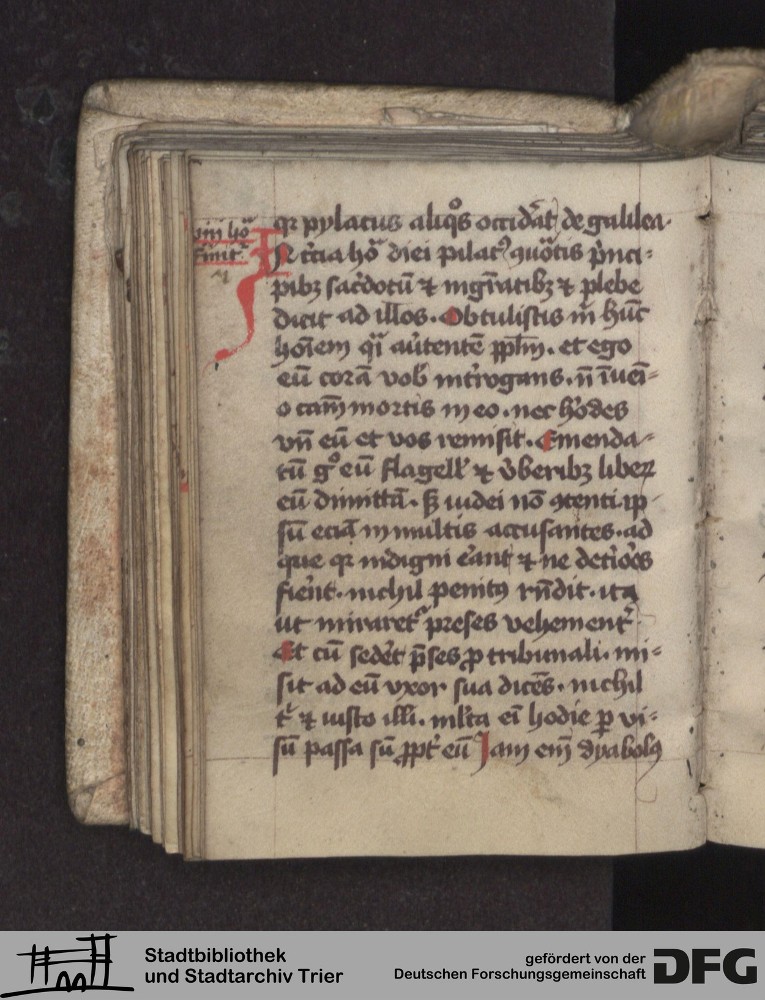 viii hõ
qꝛ pylatus aliqͦs occidãt de galilea·
IN t̾cia hõ diei pilatꝰ quõtis p̾nci⸗
pibꝫ sac̾dotũ ⁊ mgr̃atibꝫ ⁊ plebe
dicit ad illos· Obtulistis m̃ hũc
hoĩem qͥ au̾tentẽ pp̃lm̃· et ego
eũ corã vob̾ int̾rogans· ñ ĩueĩ⸗
o cam̃ mortis in eo· nec h̾odes
vñ eũ et vos remisit· Emenda⸗
tũ gͦ eũ flagell̾ ⁊ v̾beribꝫ liberꝝ
eũ dimittã· sꝫ iudei nõ ꝯtenti· ip⸗
sũ eciã in multis accusantes· ad
que qꝛ indigni e̾ant ⁊ ne det̾io̾es
fie̾nt· nichil penitꝰ rñdit· ita
ut miraret̾ p̾ses vehement̾·
Et cũ sede̾t p̃ses ꝓ tribunali· mi⸗
sit ad eũ vxor sua dicẽs· nichil
t̾ ⁊ iusto illi· ml̾ta em̃ hodie ꝑ vi⸗
sũ passa sũ ꝓpt̾ eũ Jam em̃ dyabolꝰ
Stadtbibliothek
und Stadtarchiv Trier
gefördert von der
Deutschen Forschungsgemeinschaft
DFG